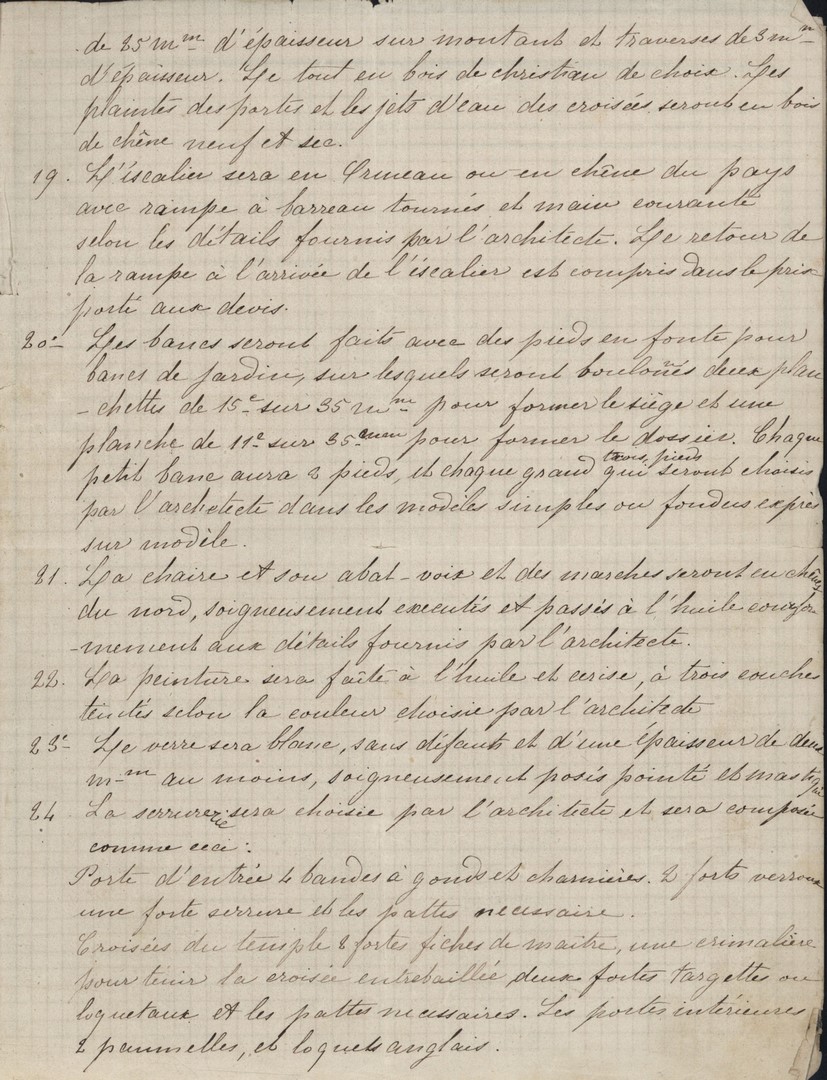 de 25 mm d'épaisseur sur montant et traverses de 3 mm
d'épaisseur. Le tout en bois de christian de choix. Les
plaintes des portes et les jets d'eau des croisées seront en bois
de chêne neuf et sec.
19. L'éscalier sera en Ormeau ou en chêne du pays
avec rampe à barreau tournés et main courante
selon les détails fournis par l'architecte. Le retour de
la rampe à l'arrivée de l'éscalier est compris dans le prix
porté aux devis.
20° Les bancs seront faits avec des pieds en fonte pour
bancs de jardin, sur lesquels seront boulonnés deux plan
-chettes de 15c sur 35 mm pour former le siège et une
planche de 11c sur 35 mm pour former le dossier. Chaque
petit banc aura 2 pieds, et chaque grand trois pieds qui seront choisis
par l'archetecte dans les modèles simples ou fondus exprès
sur modèle.
21. La chaire et son abat-voix et des marches seront en chêne
du nord, soigneusement executés et passés à l'huile confor
-mement aux détails fournis par l'architecte.
22. La peinture sera faite à l'huile et cerise, à trois couches
teintés selon la couleur choisie par l'architecte
23° Le verre sera blanc, sans défauts et d'une épaisseur de deux
m-m au moins, soigneusement posés pointé et mastiqué
24 La serrurerie sera choisie par l'architecte et sera composée
comme ceci:
Porte d'entrée 4 bandes à gonds et charnières. 2 forts verroux
une forte serrure et les pattes necessaire.
Croisées du temple 2 fortes fiches de maitre, une crimalière
pour tenir la croisée entrebaillée deux fortes targettes ou
loquetaux et les pattes necessaires. Les portes intérieures
2 paumelles, et loquets anglais.